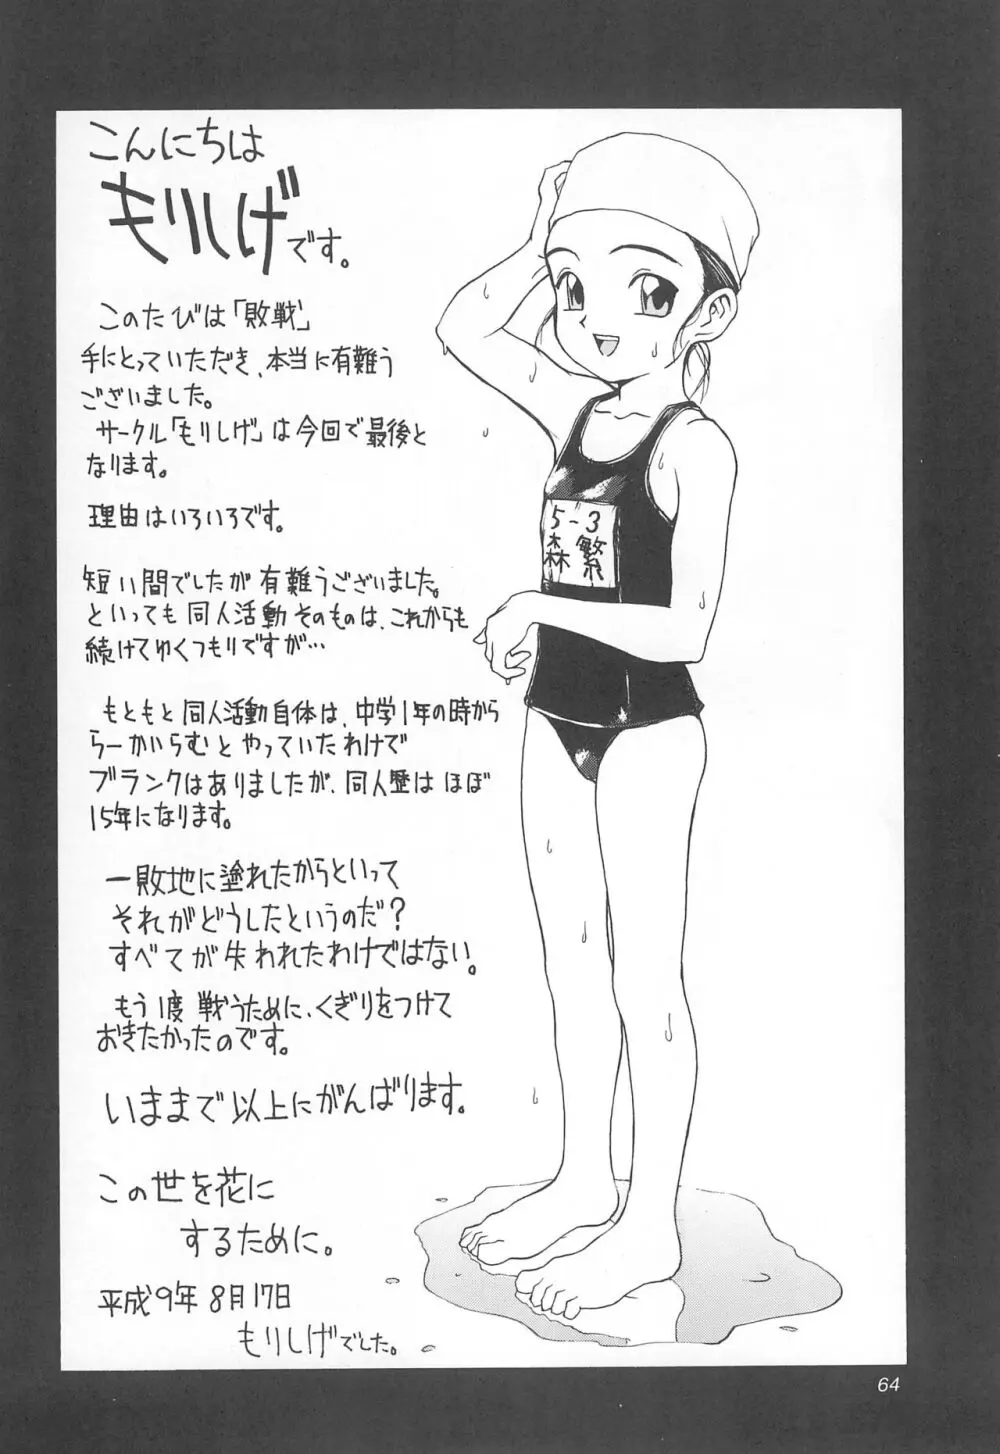 こんにちは
もりしげです。
このたびは「敗戦」
手にとっていただき、本当に有難う
ございました。
サークル「もりしげ」は今回で最後と
なります。
理由はいろいろです。
短い間でしたが有難うございました。
といっても同人活動そのものは、これからも
続けてゆくつもりですが…
もともと同人活動自体は、中学1年の時から
らーかいらむとやっていたわけで
ブランクはありましたが、同人歴はほぼ
15年になります。
一敗地に塗れたからといって
それがどうしたというのだ?
すべてが失われたわけではない。
もう1度戦うために、くぎりをつけて
おきたかったのです。
いままで以上にがんばります。
この世を花に
するために。
平成9年8月17日
もりしげでした。
5-3
森繁
64